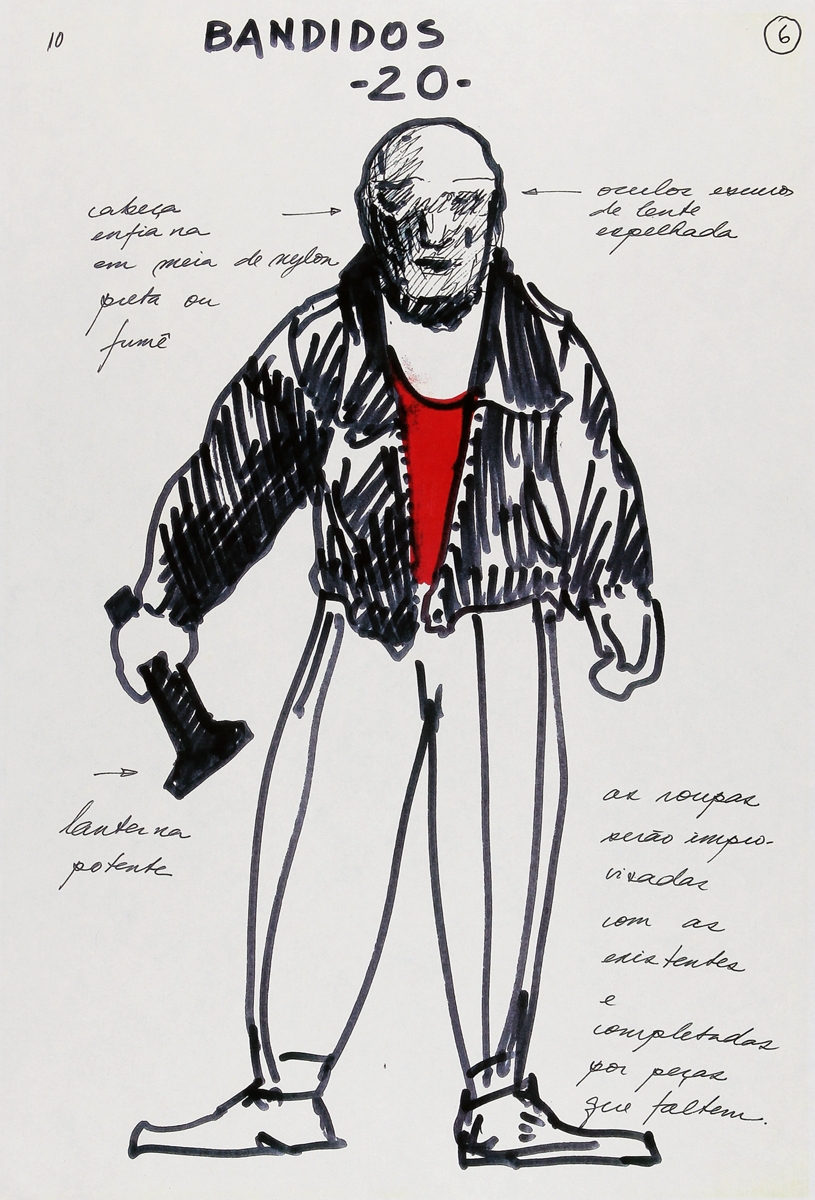 10
BANDIDOS
6
-20-
cabeça
enfiana
em meia de nylon
preta ou
fumê
oculos escuros
de lente
espelhada
lanterna
potente
as roupas
serão impro-
visadas
com as
existentes
e
completadas
por peças
que faltem.